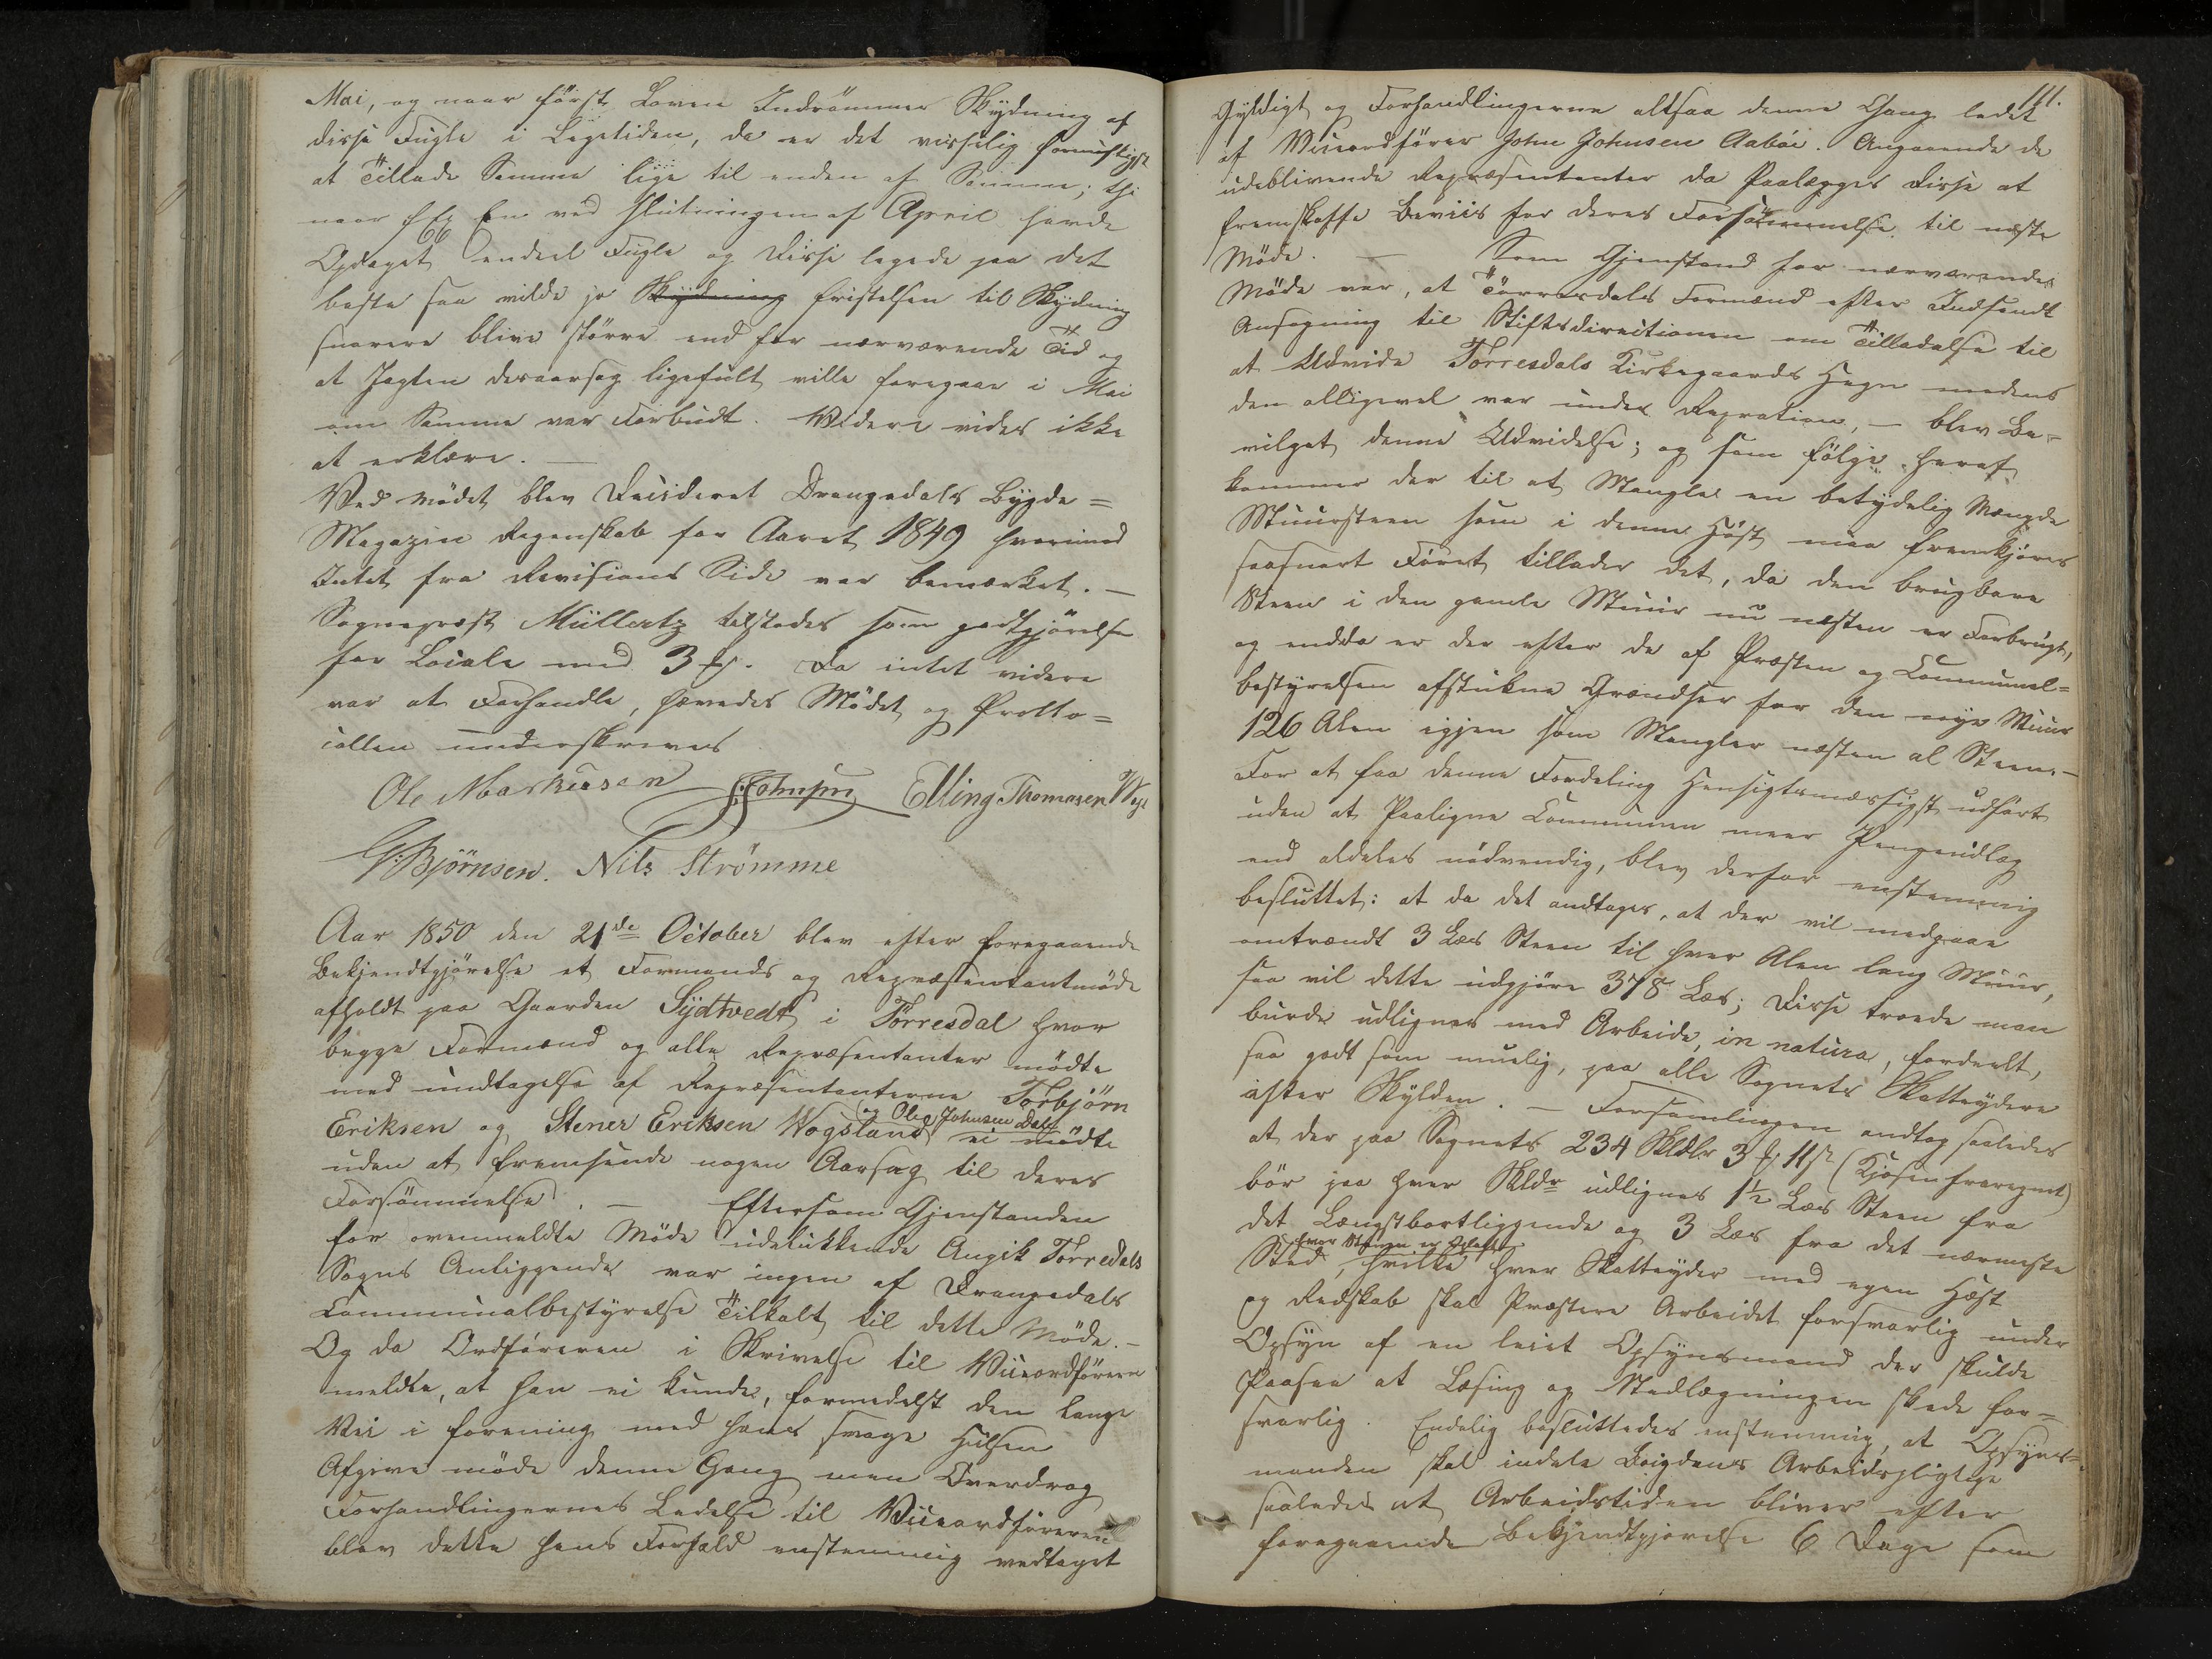 Mai, og naar först Loven Indrömmer Skydning af
disse Fugle i Legetiden, da er det visselig fornuftigst
at Tillade Samme lige til enden af Samme; thi
naar f Ex En ved Slutningen af April havde
Opdaget endeel Fugle og Disse legede paa det
beste saa vilde jo Skydning fristelsen til Skydning
snarere blive större end for nærværende Tid og
at Jagten desaarsag ligefult ville foregaae i Mai
om Samme var Forbudt. Videre vides ikke
at erklære. —
Ved Mödet blev Decideret Drangedals Bygde=
Magazins Regnskab for Aaret 1849 hvorimod
Intet fra Revisions Side var bemærket. —
Sognepræst Müllertz tilstodes som godtgjörelse
for Locale med 3 ß. Da intet videre
var at Forhandle, hævedes Mödet og Protto=
collen underskreves
Ole Markusen JJohnsen Elling Thomasen
G: Björnsen. Nils Strømme
Aar 1850 den 21de October blev efter foregaaende
Bekjendtgjörelse et Formands og Repræsentantmöde
afholdt paa Gaarden Sydtvedt i Törresdal hvor
begge Formænd og alle Repræsentanter mödte
med undtagelse af Repræsentanterne Torbjörn
Eriksen og Stener Eriksen Wogsland og Ole Johnsen Dale ei mödte
uden at fremsende nogen Aarsag til deres
Forsömmelse. — Eftersom Gjenstanden
for ovenmeldte Möde udelukkende Angik Törredals
Sogns Anliggende var ingen af Drangedals
Communalbestyrelse Tilkalt til dette Möde. —
Og da Ordföreren i Skrivelse til Viceordföreren
meldte, at han ei kunde, formedelst den lange
Vei i forening med hans svage Hülsen
Afgive möde denne Gang men Overdrog
Forhandlingernes Ledelse til Viceordföreren
blev dette hans Forfald enstemmig vedtaget
111.
Gyldigt og Forhandlingerne altsaa denne Gang ledet
af Viceordförer John Johnsen Aaböe. Angaaende de
udeblivende Repræsentanter da Paalægges Disse at
fremskaffe Beviis for deres Forsömmelse til næste
Möde. — Som Gjenstand for nærværende
Möde var, at Törresdals Formænd efter Indsendt
Ansøgning til Stiftsdirectionen om Tilladelse til
at Udvide Törresdals Kirkegaards Hegn medens
den alligevel var under Repration, — blev Be=
vilget denne Udvidelse; og som fölge heraf
kommer der til at Mangle en betydelig Mængde
Muursteen som i denne Höst maa fremkjöres
saasnart Föret tillader det, da den brugbare
Steen i den gamle Muur nu næsten er Forbrugt,
og endda er der efter de af Præsten og Communal=
bestyrelsen afstukne Grændser for den nye Muur
126 Alen igjen som Mangler næsten al Steen. —
For at faa denne Fordeling Hensigtsmæssigst udfört
uden at Paaligne Communen meer Pengeudlæg
end aldeles nödvendig, blev derfor enstemmig
besluttet: at da det andtages, at der vil medgaae
omtrændt 3 Læs Steen til hver Alen lang Muur,
saa vil dette udgjöre 378 Læs; Disse troede man
burde udlignes med Arbeide, in natura, fordeelt,
saa godt som muelig, paa alle Sognets Skatteydere
efter Skylden. — Forsamlingen andtog saaledes
at der paa Sognets 234 Skldlr 3 ß 11 s (Kjosen fraregnet)
bör paa hver Skldr udlignes 1½ Læs Steen fra
det Længstbortliggende og 3 Læs fra det nærmeste
Sted, hvor Stenen er hvilke hver Skatteyder med egen Hæst
og Redskab skal Præstere Arbeidet forsvarlig under
Opsyn af en leiet Opsynsmand der skulde
Paasee at Læsing og Stedlægningen skede for=
svarlig. Endelig besluttedes enstemmig, at Opsyns=
manden skal indele Boigdens Arbeidspligtige
saaledes at Arbeidstiden bliver efter
foregaaende Bekjendtgjörelse 6 Dage som